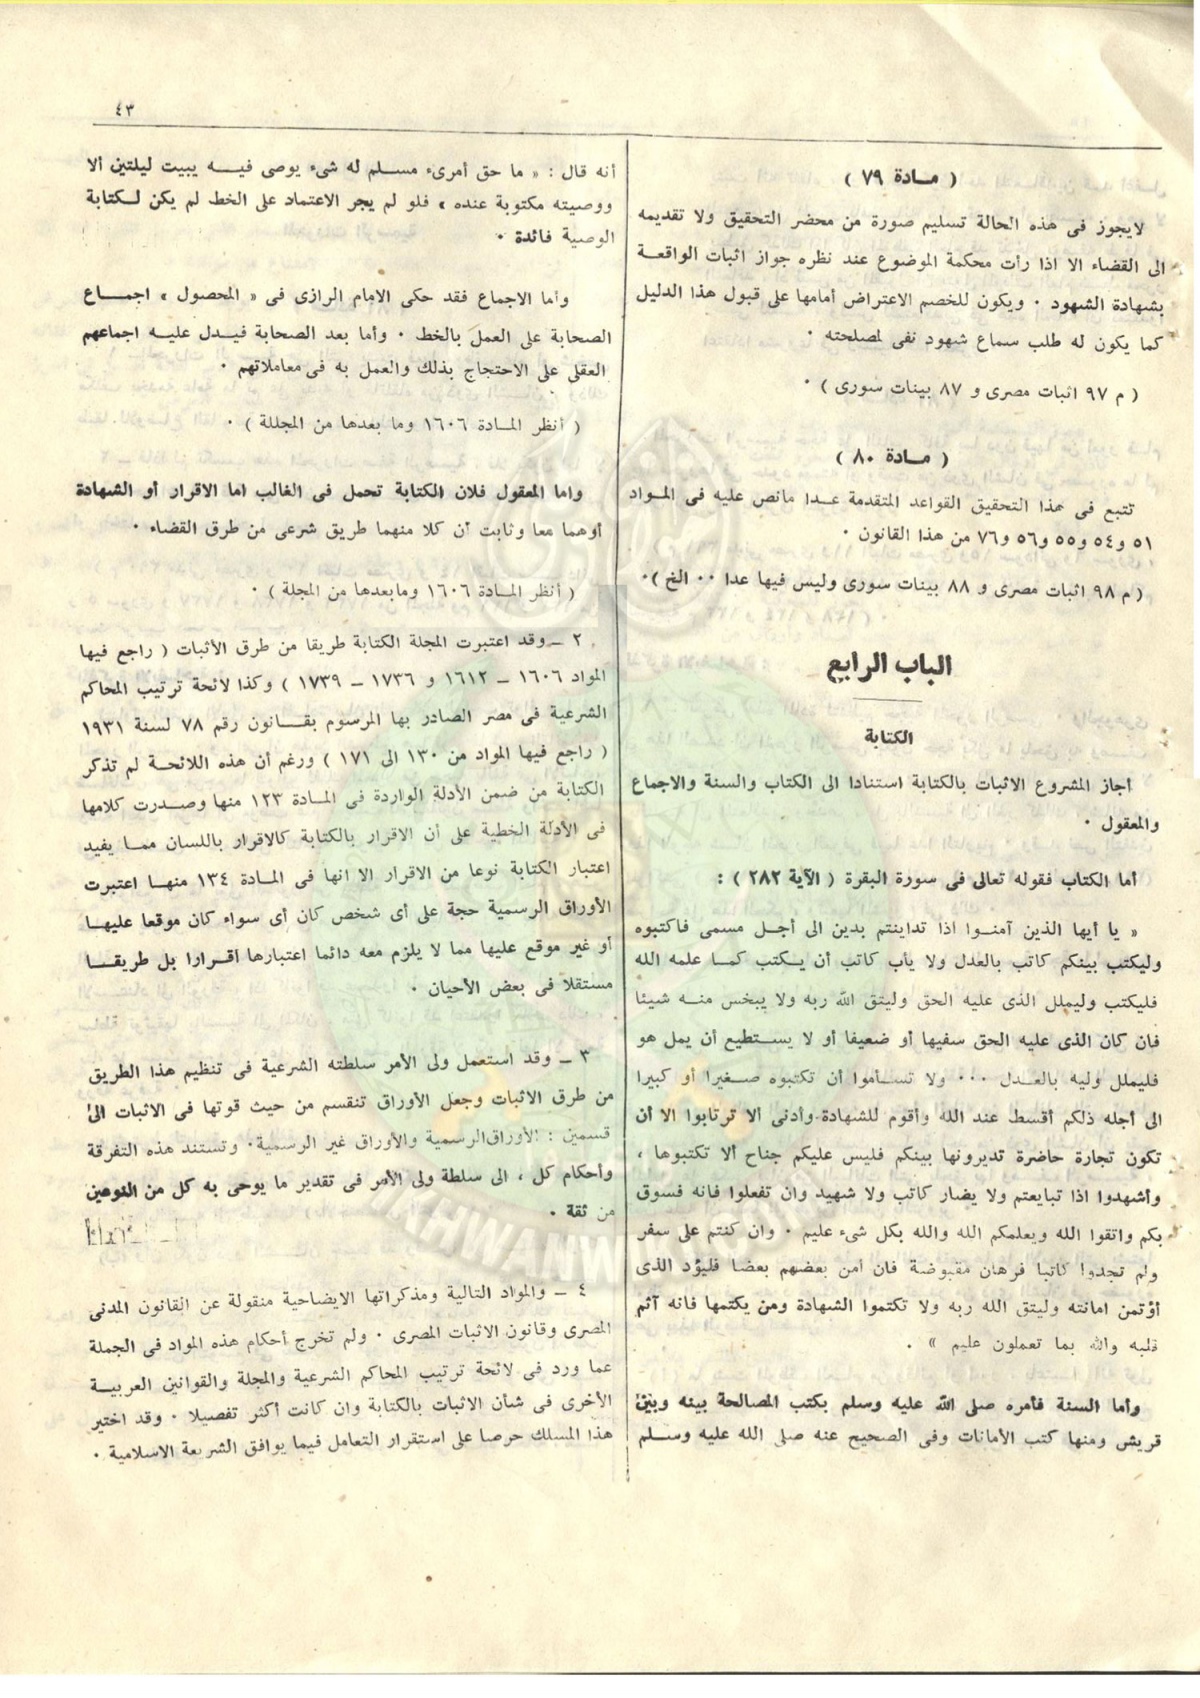 ٤٣
( مـادة ٧٩ )
لايجوز فى هذه الحالة تسليم صورة من محضر التحقيق ولا تقديمه
الى القضاء الا اذا رأت محكمة الموضوع عند نظره جواز اثبات الواقعة
بشهادة الشهود ٠ ويكون للخصم الاعتراض أمامها على قبول هذا الدليل
كما يكون له طلب سماع شهود نفى لمصلحته ٠
( م ٩٧ اثبات مصرى و ٨٧ بينات سورى ) ٠
( مـادة ٨٠ )
تتبع فى هذا التحقيق القواعد المتقدمة عـدا مانص عليه فى المـواد
٥١ و٥٤ و٥٥ و٥٦ و٧٦ من هذا القانون ٠
( م ٩٨ اثبات مصرى و ٨٨ بينات سورى وليس فيها عدا ٠٠ الخ ) ٠
الباب الرابع
الكتابة
أجاز المشروع الاثبات بالكتابة استنادا الى الكتاب والسنة والاجماع
والمعقول ٠
أما الكتاب فقوله تعالى فى سورة البقرة ( الآية ٢٨٢ ) :
« يا أيها الذين آمنـوا اذا تداينتم بدين الى أجـل مسمى فاكتبوه
وليكتب بينكم كاتب بالعدل ولا يأب كاتب أن يـكتب كمـا علمه الله
فليكتب وليملل الذى عليه الحق وليتق الله ربه ولا يبخس منـه شيئا
فان كان الذى عليه الحق سفيها أو ضعيفا أو لا يسـتطيع أن يمل هو
فليملل وليه بالعـدل ٠٠٠ ولا تسـأموا أن تكتبوه صـغيرا أو كبيرا
الى أجله ذلكم أقسط عند الله وأقوم للشهادة وأدنى ألا ترتابوا الا أن
تكون تجارة حاضرة تديرونها بينكم فليس عليكم جناح ألا تكتبوها ،
وأشهدوا اذا تبايعتم ولا يضار كاتب ولا شهيد وان تفعلوا فانه فسوق
بكم واتقوا الله ويعلمكم الله والله بكل شىء عليم ٠ وان كنتم على سفر
ولم تجدوا كاتبا فرهان مقبوضة فان أمن بعضهم بعضا فليؤد الذى
أؤتمن امانته وليتق الله ربه ولا تكتموا الشهادة ومن يكتمها فانه آثم
قلبه والله بما تعملون عليم » ٠
وأما السنة فأمره صلى الله عليه وسلم بكتب المصالحة بينه وبين
قريش ومنها كتب الأمانات وفى الصحيح عنه صلى الله عليه وسـلم
أنه قال : « ما حق أمرىء مسـلم له شىء يوصى فيـه يبيت ليلتين ألا
ووصيته مكتوبة عنده » فلو لم يجر الاعتماد على الخط لم يكن لـكتابة
الوصية فائدة ٠
وأما الاجماع فقد حكى الامام الرازى فى « المحصول » اجمـاع
الصحابة على العمل بالخط ٠ وأما بعد الصحابة فيـدل عليـه اجماعهم
العقلى على الاحتجاج بذلك والعمل به فى معاملاتهم ٠
( أنظر المـادة ١٦٠٦ وما بعدها من المجللة ) ٠
واما المعقول فلان الكتابة تحمل فى الغالب اما الاقرار أو الشهادة
أوهما معا وثابت أن كلا منهما طريق شرعى من طرق القضاء ٠
( أنظر المـادة ١٦٠٦ ومابعدها من المجلة ) ٠
٢ ـ وقد اعتبرت المجلة الكتابة طريقا من طرق الأثبات ( راجع فيها
المواد ١٦٠٦ ـ ١٦١٢ و ١٧٣٦ ـ ١٧٣٩ ) وكذا لائحة ترتيب المحاكم
الشرعية فى مصر الصادر بها المرسوم بقـانون رقم ٧٨ لسنة ١٩٣١
( راجع فيها المواد من ١٣٠ الى ١٧١ ) ورغم أن هذه اللائحـة لم تذكر
الكتابة من ضمن الأدلة الواردة فى المـادة ١٢٣ منها وصـدرت كلامها
فى الأدلة الخطية على أن الاقرار بالكتابة كالاقرار باللسان ممـا يفيد
اعتبار الكتابة نوعا من الاقرار الا انها فى المـادة ١٣٤ منهـا اعتبرت
الأوراق الرسمية حجة على أى شخص كان أى سواء كان موقعا عليهـا
أو غير موقع عليها مما لا يلزم معه دائما اعتبارها اقـرارا بل طريقـا
مستقلا فى بعض الأحيان ٠
٣ ـ وقد استعمل ولى الأمر سلطته الشرعية فى تنظيم هذا الطريق
من طرق الاثبات وجعل الأوراق تنقسم من حيث قوتها فى الاثبات الى
قسمين : الأوراق الرسمية والأوراق غير الرسمية ٠ وتستند هذه التفرقة
وأحكام كل ، الى سلطة ولى الأمر فى تقدير ما يوحى به كل من النوعين
من ثقة ٠
٤ ـ والمواد التالية ومذكراتها الايضاحية منقولة عن القانون المدنى
المصرى وقانون الاثبات المصرى ٠ ولم تخرج أحكام هذه المواد فى الجملة
عما ورد فى لائحة ترتيب المحاكم الشرعية والمجلة والقوانين العربيـة
الأخرى فى شأن الاثبات بالكتابة وان كانت أكثر تفصيلا ٠ وقد اختير
هذا المسلك حرصا على استقرار التعامل فيما يوافق الشريعة الاسلامية ٠